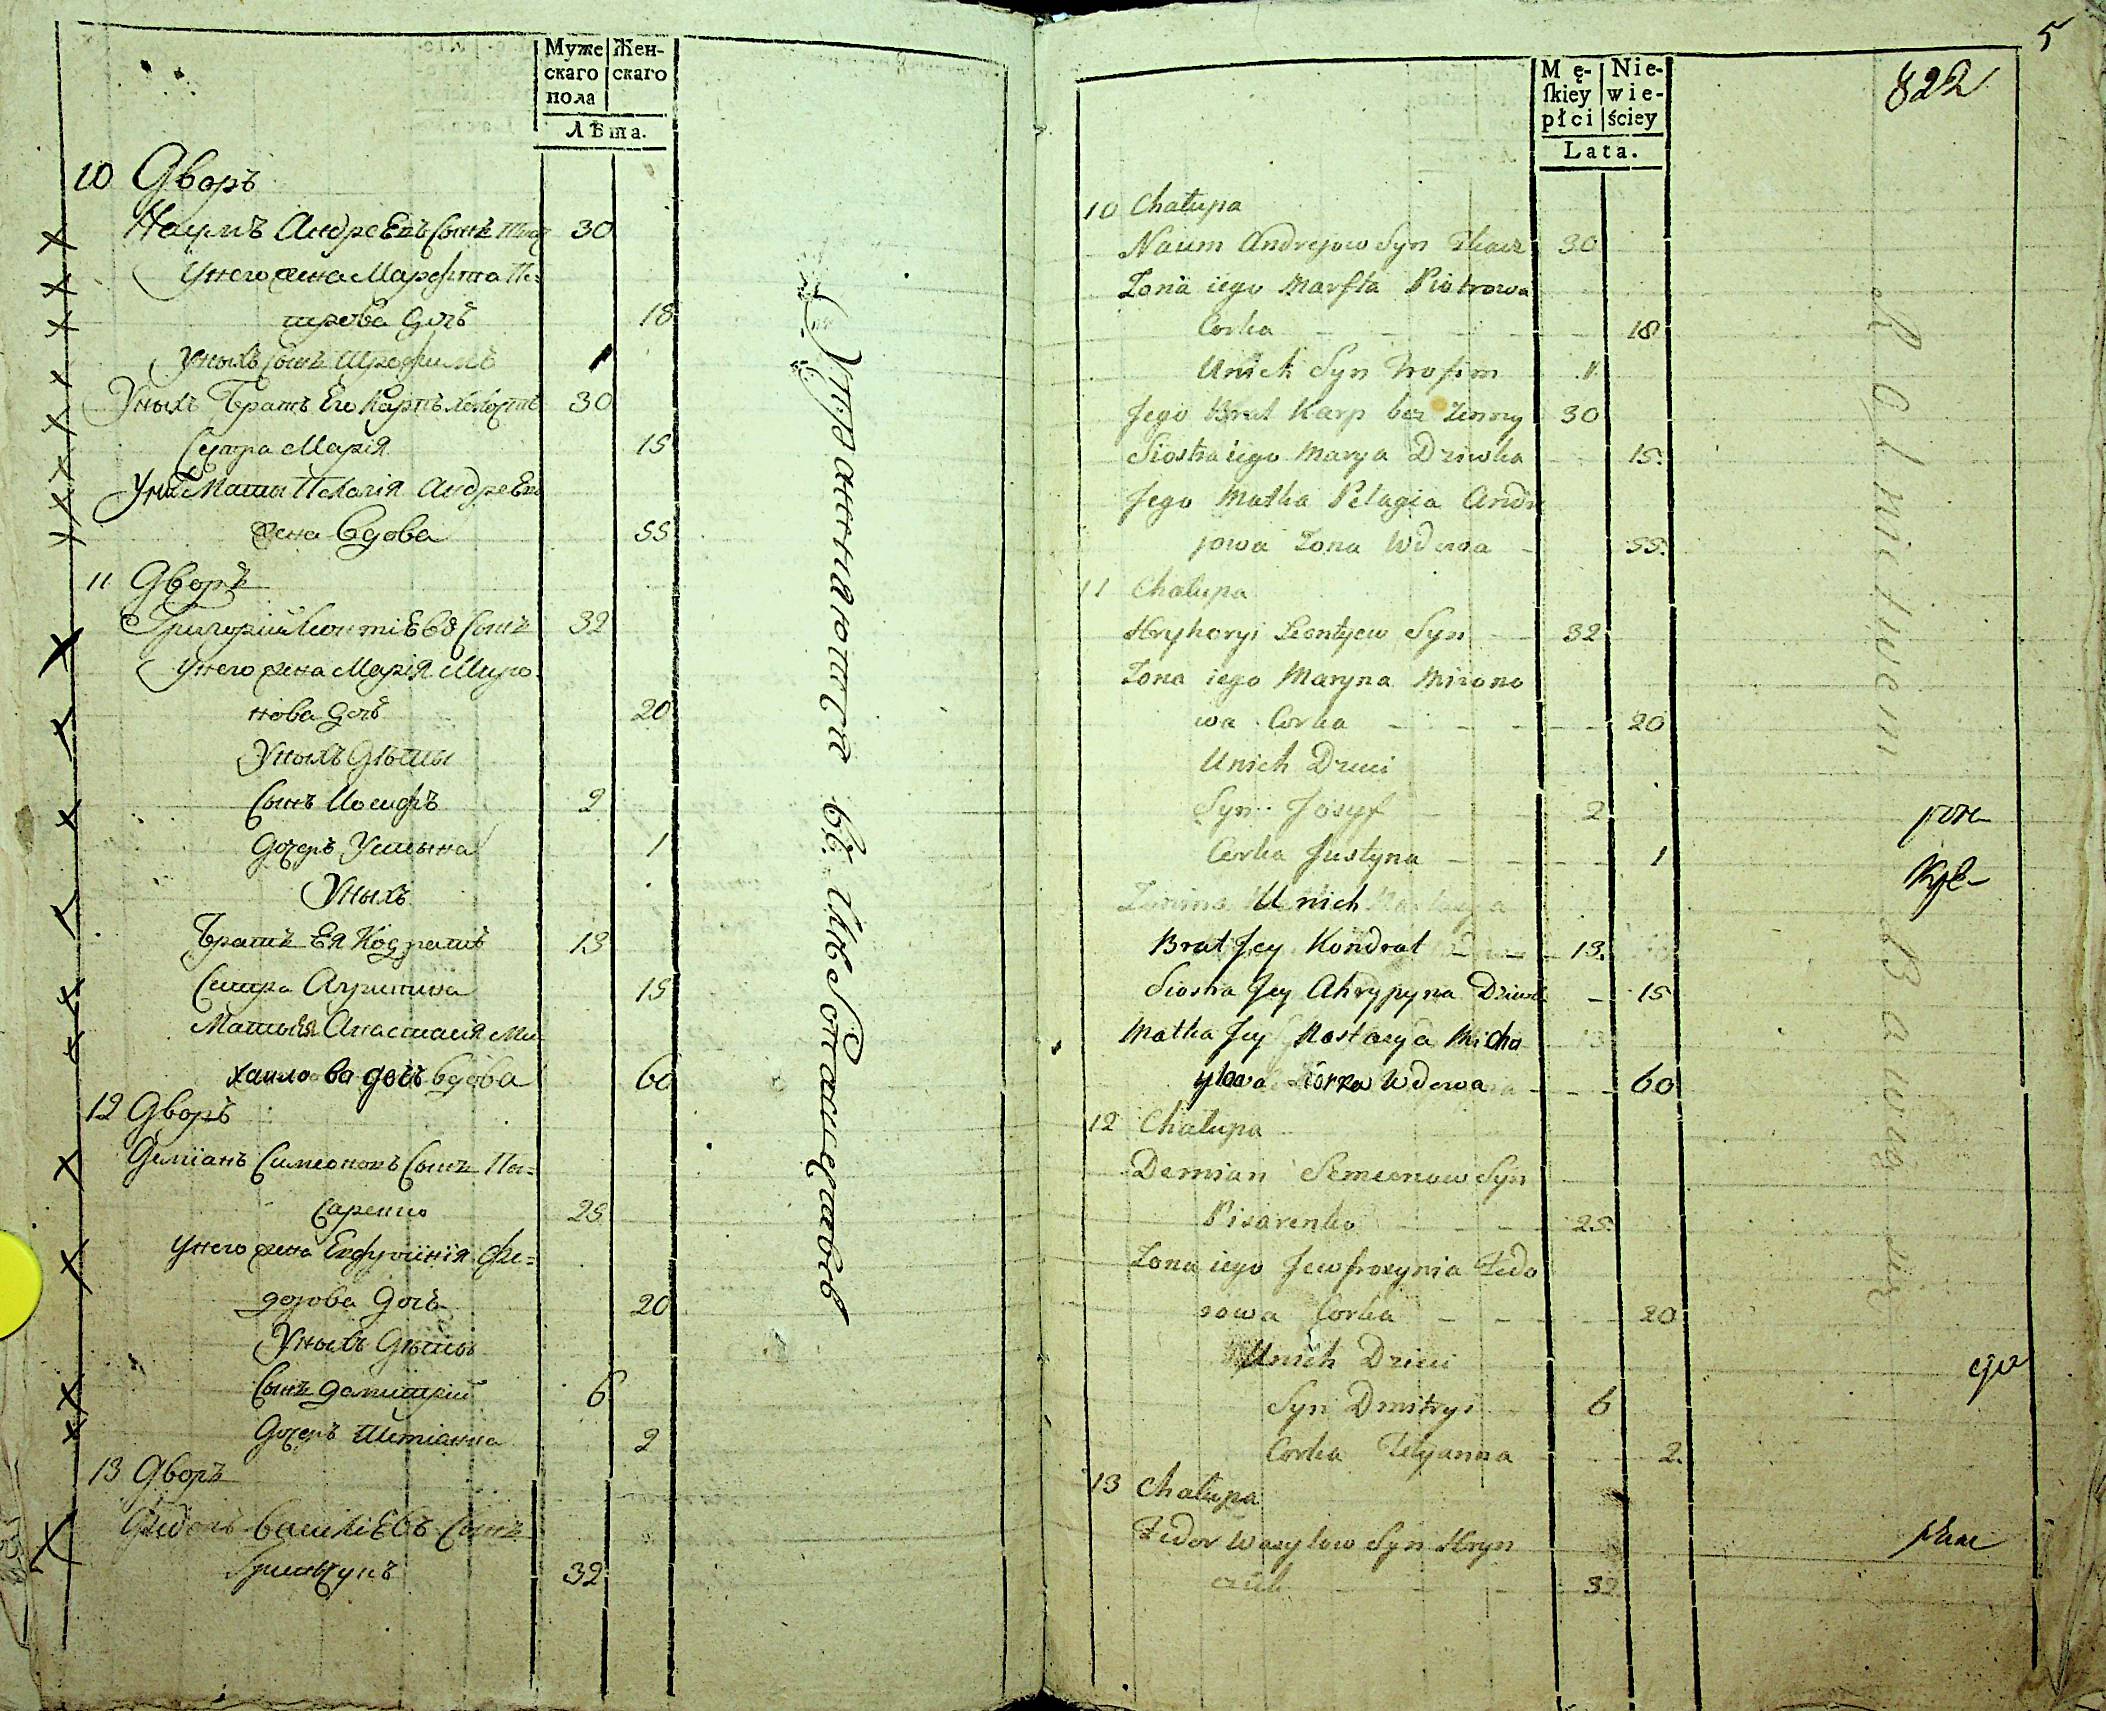 Муже
скаго
пола
Жен-
скаго
Лѣта.
10 Дворъ
Наумъ Андреевъ Сынъ Ткач 30
Унего жена Марфта Пе=
трова Дочъ 18
Уныхъ Сынъ Трофимъ 1
Уныхъ Братъ Его Карпъ холостъ 30
Сестра Марія 15
Уныхъ Маты Пелагія Андреева
жена Вдова 55
11 Дворъ
Григорій Леонтіевъ Сынъ 32
Унего жена Марія Миро
нова Дочъ 20
Уныхъ Дѣты
Сынъ Иосифъ 2
Дочеръ Устына 1
Уныхъ
Братъ Ея Кодратъ 13
Сестра Агрипина 15
Маты Ея Анастасія Ми
хаилова дочъ вдова 60
12 Дворъ
Деміанъ Симеоновъ Сынъ Пи=
саренко 25
Унего жена Евфросінія Фе=
дорова Дочъ 20
Уныхъ Дѣты
Сынъ Димитрій 6
Дочеръ Тетіанна 2
13 Дворъ
Федоръ Василіевъ Сынъ
Гринчукъ 32
5
822
Mę-
ſkiey
płci
Nie-
wie-
ściey
Lata.
10 Chałupa
Naum Andrejow Syn Tkacz 30
Zona iego Marfta Piotrowa
Corka 18
Unich Syn Trofim 1
Jego Brat Karp bez Zenny 30
Siostra iego Marya Dziewka 15
Jego Matka Pelagia Andre
jowa Zona Wdowa 55
11 Chałupa
Hryhoryi Leontyew Syn 32
Zona iego Maryna Mirono
wa Corka 20
Unich Dzieci
Syn Josyf 2
Corka Justyna 1
Unich
Brat Jey Kondrat 13
Siostra Jey Ahrypyna Dziewk 15
Matka Jey Nastasya Micha
yłowa Corka Wdowa 60
12 Chałupa
Demian Semeonow Syn
Pisarenko 25
Zona iego Jewfrosynia Fedo
rowa Corka 20
Unich Dzieci
Syn Dmitryi 6
Corka Tetyanna 2
13 Chałupa
Fedor Wasylow Syn Hryn
czuk 32